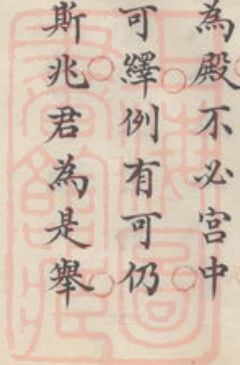 為殿不必宫中
可繹例有可仍
斯兆君為是舉